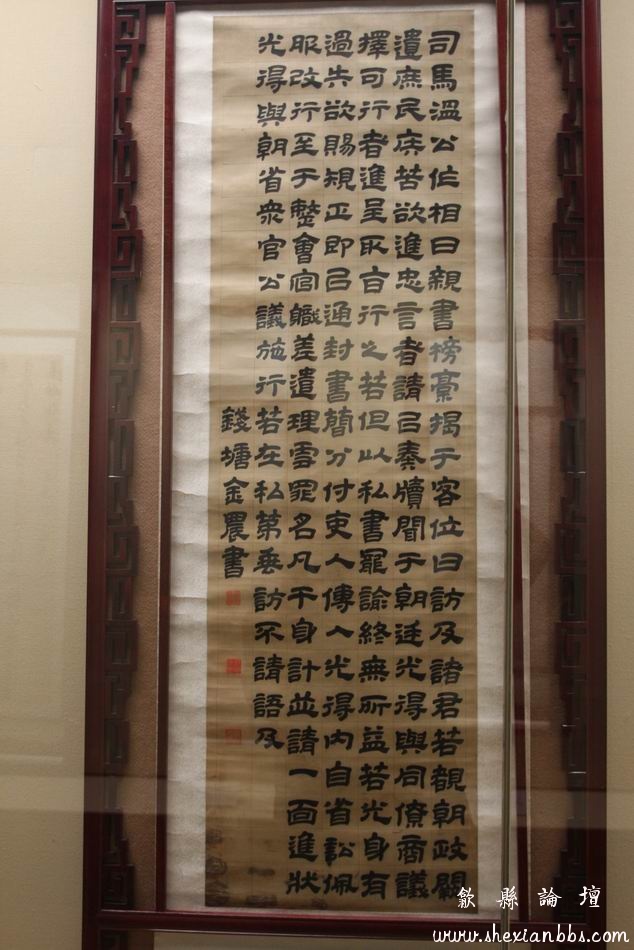 司馬溫公作相日親書榜稾揭于客位曰訪及諸君若覩朝政闕
遺庶民疾苦欲進忠言者請㠯奏牘聞于朝廷光得與同僚商議
擇可行者進呈取旨行之若但以私書寵諭終無所益若光身有
過失欲賜規正即㠯通封書簡分付吏人傳入光得內自省訟佩
服改行至于整會官職差遣理雪罪名凡干身計並請一面進狀
光得與朝省眾官公議施行若在私第垂訪不請語及
錢塘金農書
歙縣論壇
www.shexianbbs.com